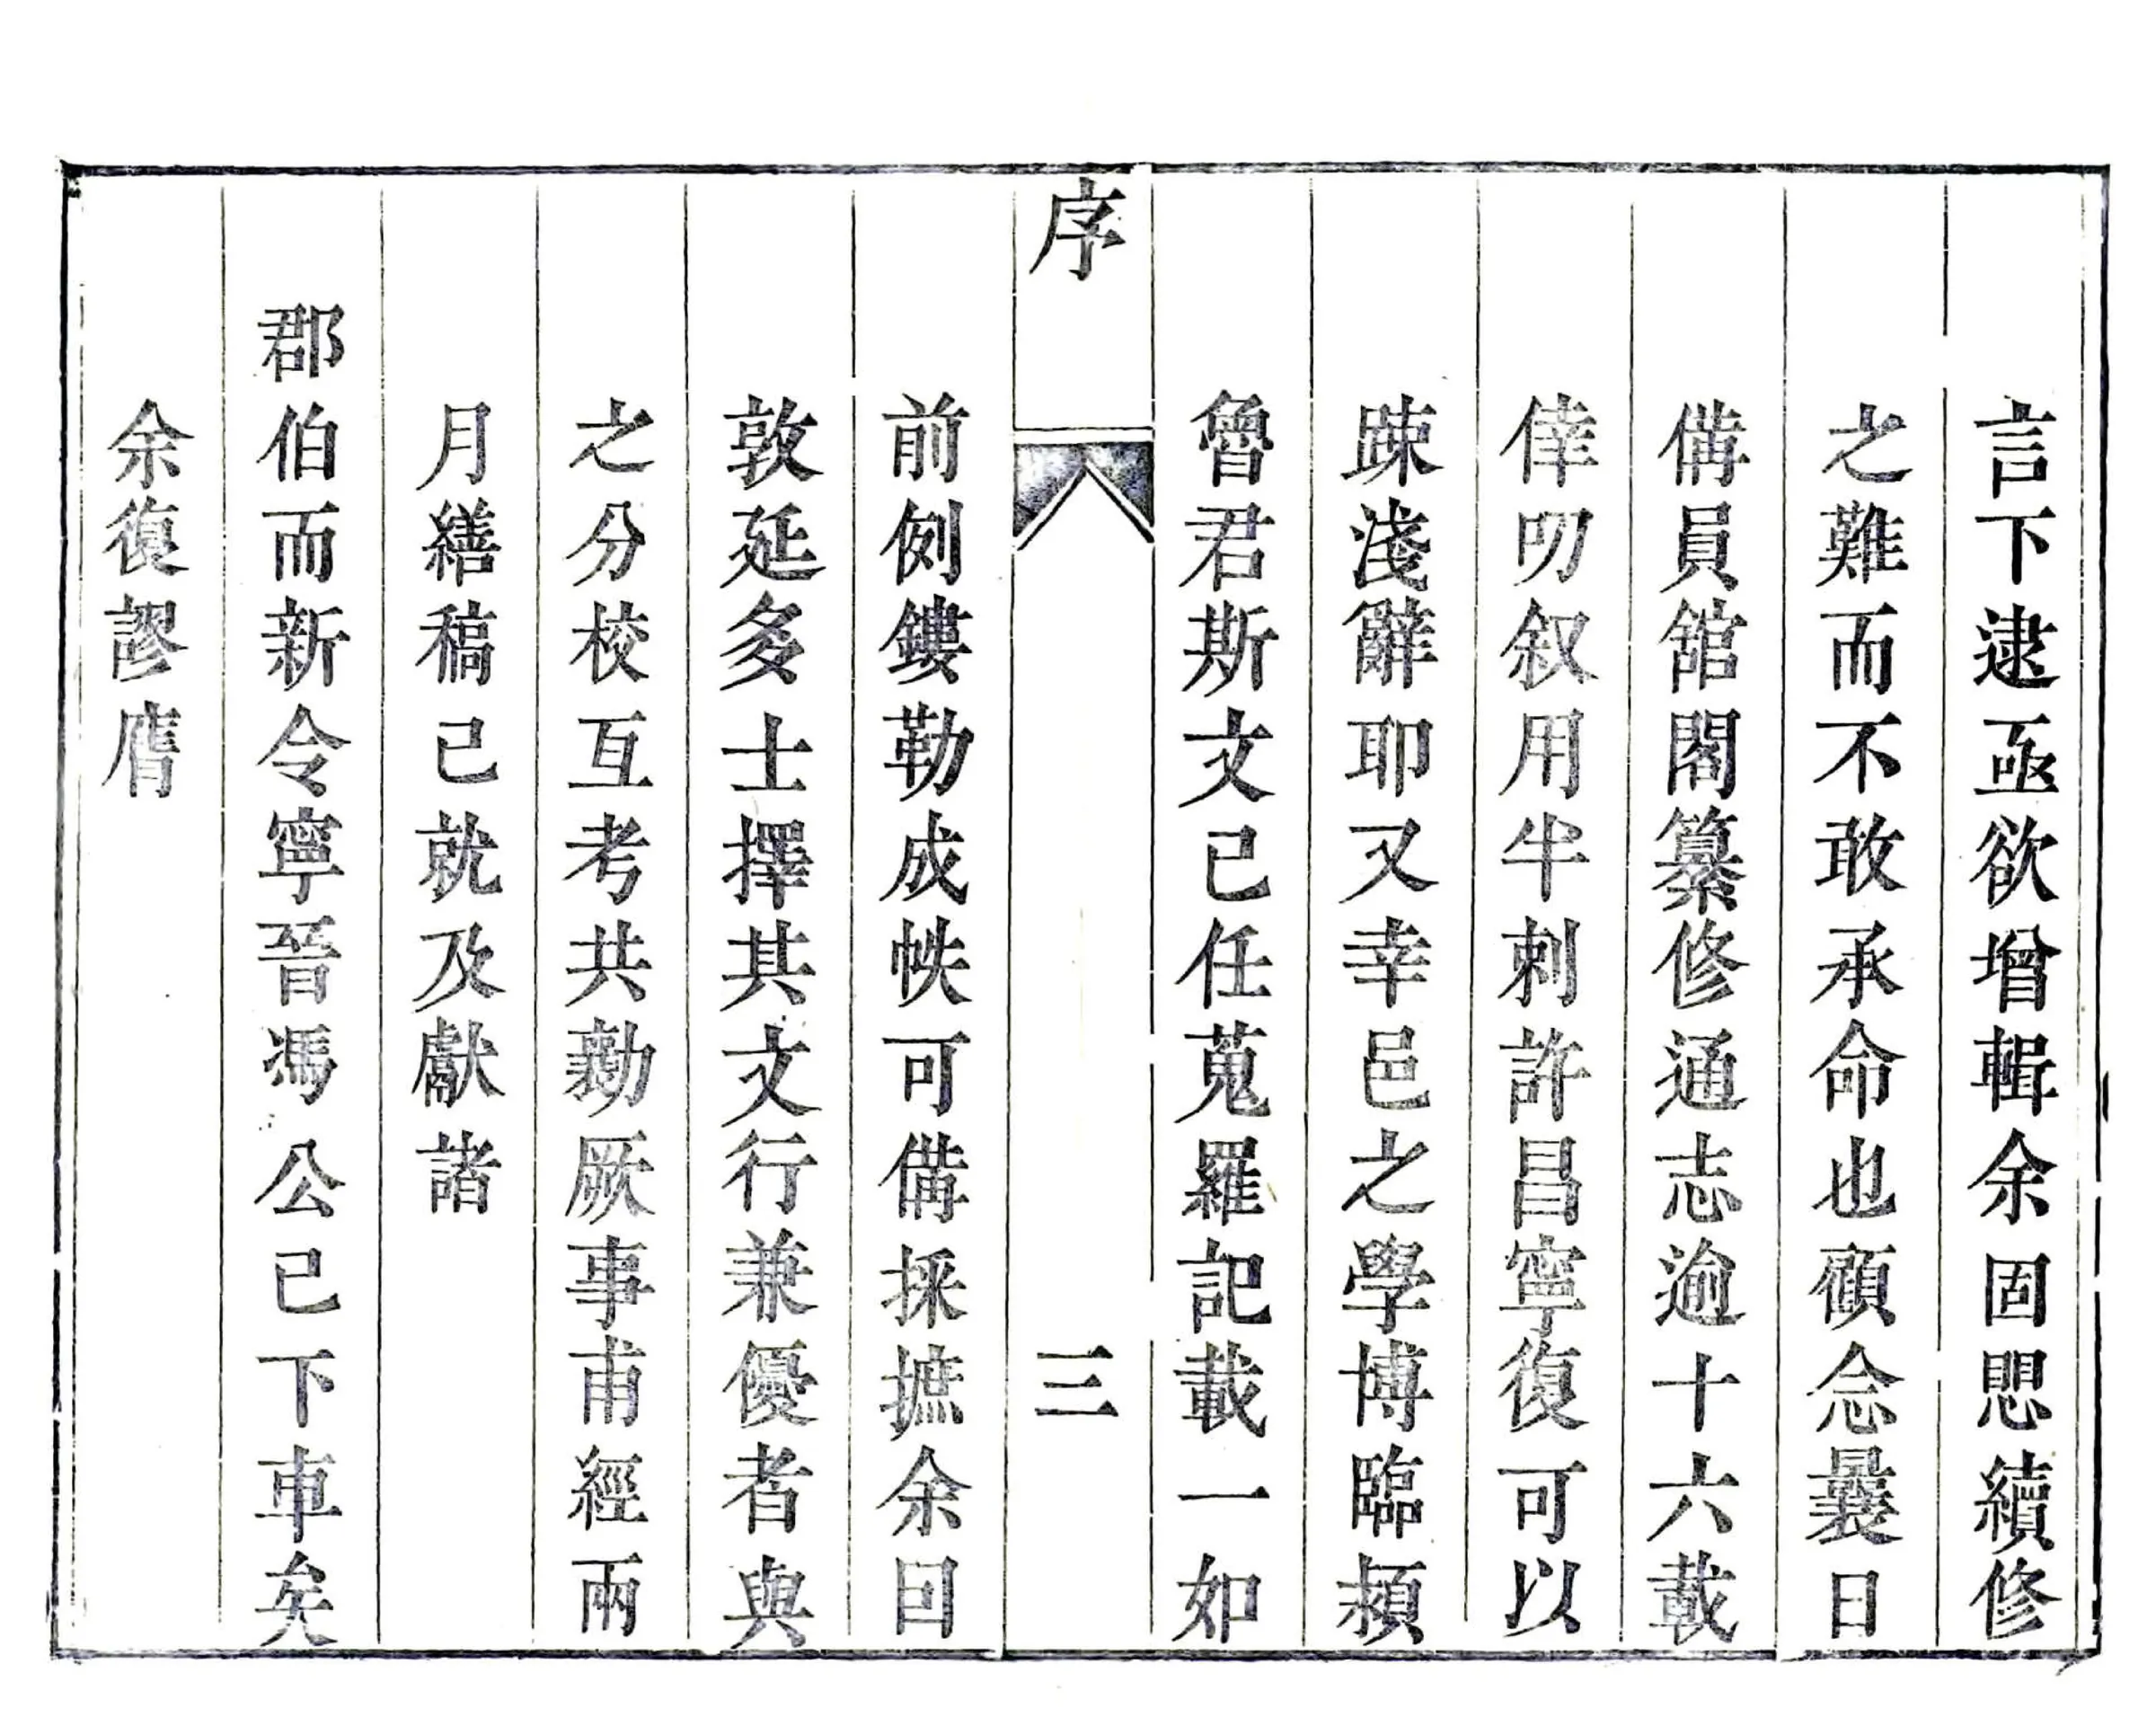 言下逮亟欲增輯余固思續修
之難而不敢承命也顧念曩日
備員舘閣纂修通志逾十六載
倖叨叙用半刺許昌寧復可以
踈淺辭耶又幸邑之學博臨潁
魯君斯文已任蒐羅記載一如
序
三
前例鏤勒成帙可備採摭余因
敦延多士擇其文行兼優者與
之分校互考共勷厥事甫經兩
月繕稿已就及獻諸
郡伯而新令寧晉馮公已下車矣
余復謬膺